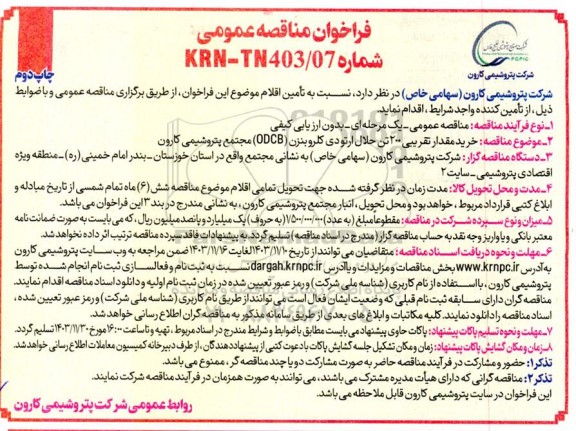 فراخوان مناقصه عمومی
شماره KRN-TN403/07
شرکت پتروشیمی کارون
چاپ دوم
شرکت پتروشیمی کارون (سهامی خاص) در نظر دارد، نسبت به تأمین اقلام موضوع این فراخوان، از طریق برگزاری مناقصه عمومی و با ضوابط
ذیل، از تأمین کننده واجد شرایط، اقدام نماید.
۱- نوع فرآیند مناقصه: مناقصه عمومی - یک مرحله ای - بدون ارزیابی کیفی
۲- موضوع مناقصه: خرید مقدار تقریبی ۲۰۰ تن حلال ارتو دی کلرو بنزن (ODCB) مجتمع پتروشیمی کارون
۳- دستگاه مناقصه گزار: شرکت پتروشیمی کارون (سهامی خاص) به نشانی مجتمع واقع در استان خوزستان - بندر امام خمینی (ره) - منطقه ویژه
اقتصادی پتروشیمی - سایت ۲
۴- مدت و محل تحویل کالا: مدت زمان در نظر گرفته شده جهت تحویل تمامی اقلام موضوع مناقصه شش (۶) ماه تمام شمسی از تاریخ مبادله و
ابلاغ کتبی قرارداد مربوط، خواهد بود و محل تحویل، انبار مجتمع پتروشیمی کارون، به نشانی مندرج در بند ۳ این فراخوان می باشد.
۵- میزان و نوع سپرده شرکت در مناقصه: مقطوعا مبلغ (به عدد) ۱/۵۰۰/۰۰۰/۰۰۰ (به حروف) یک میلیارد و پانصد میلیون ریال، که می بایست به صورت ضمانت نامه
معتبر بانکی و یا واریز وجه نقد به حساب مناقصه گزار (مندرج در اسناد مناقصه) تسلیم گردد. به پیشنهادات فاقد سپرده مناقصه ترتیب اثر داده نخواهد شد.
۶- مهلت و نحوه دریافت اسناد مناقصه: متقاضیان می توانند از تاریخ ۱۴۰۳/۱۱/۱۰ لغایت ۱۴۰۳/۱۱/۱۶ ضمن مراجعه به وب سایت پتروشیمی کارون
به آدرس www.krnpc.ir بخش مناقصات و مزایدات و یا آدرس dargah.krnpc.ir نسبت به ثبت نام و فعالسازی ثبت نام انجام شده توسط
پتروشیمی کارون، با استفاده از نام کاربری (شناسه ملی شرکت) و رمز عبور تعیین شده در زمان ثبت نام اولیه و دانلود اسناد مناقصه اقدام نمایند.
مناقصه گران دارای سابقه ثبت نام قبلی که وضعیت ایشان فعال است می توانند از طریق نام کاربری (شناسه ملی شرکت) و رمز عبور تعیین شده،
اسناد مناقصه را دانلود نمایند. کلیه مکاتبات و ابلاغ های بعدی از طریق سامانه مذکور به مناقصه گران اطلاع رسانی خواهد شد.
۷- مهلت و نحوه تسلیم پاکات پیشنهاد: پاکات حاوی پیشنهاد می بایست مطابق با ضوابط و شرایط مندرج در اسناد مربوط، تهیه و تا ساعت ۱۶:۰۰ مورخ ۱۴۰۳/۱۱/۳۰ تسلیم گردد.
۸- زمان و مکان گشایش پاکات پیشنهاد: زمان و مکان تشکیل جلسه گشایش پاکات با دعوت کتبی از پیشنهاد دهندگان، از طرف دبیرخانه کمیسیون معاملات اطلاع رسانی خواهد شد.
تذکر۱: حضور و مشارکت در فرآیند مناقصه حاضر به صورت مشارکت دو یا چند مناقصه گر، ممنوع می باشد.
تذکر۲: مناقصه گرانی که دارای هیأت مدیره مشترک می باشند، نمی توانند به صورت همزمان در فرآیند مناقصه شرکت نمایند.
این فراخوان در سایت پتروشیمی کارون قابل ملاحظه می باشد.
روابط عمومی شرکت پتروشیمی کارون